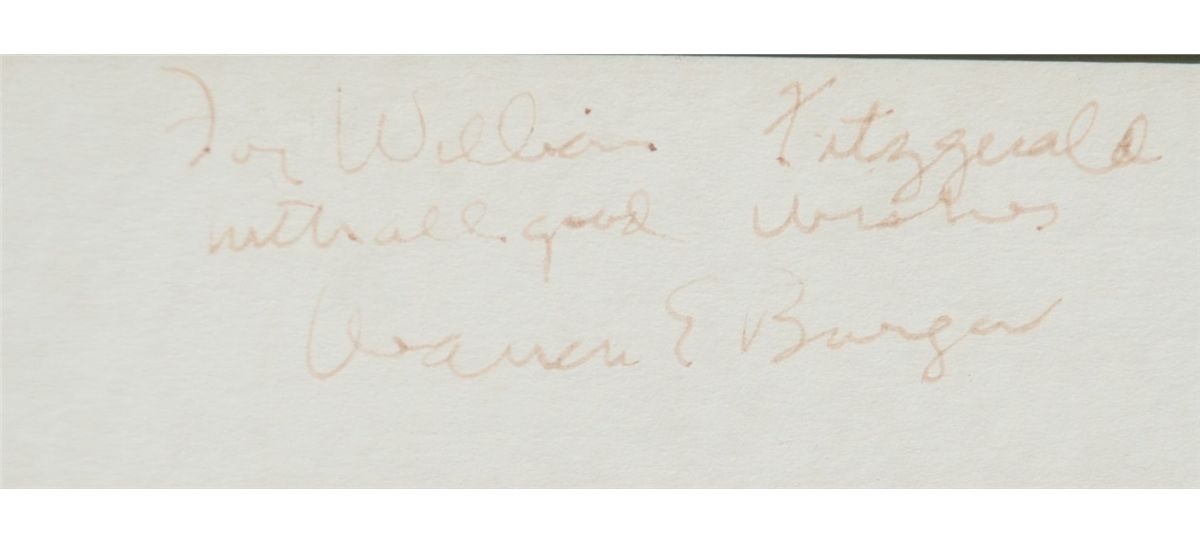 For William Fitzgerald
with all good wishes
Warren E Burger